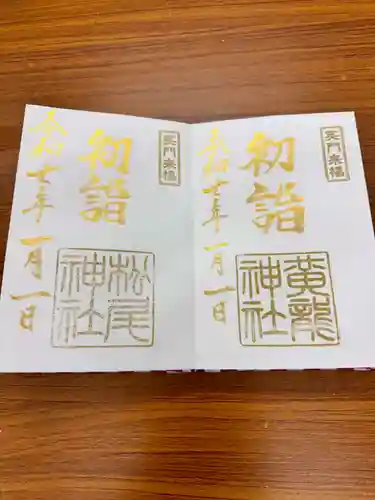 笑門来福
初詣
黄龍
神社
令和七年一月一日
笑門来福
初詣
松尾
神社
令和七年一月一日